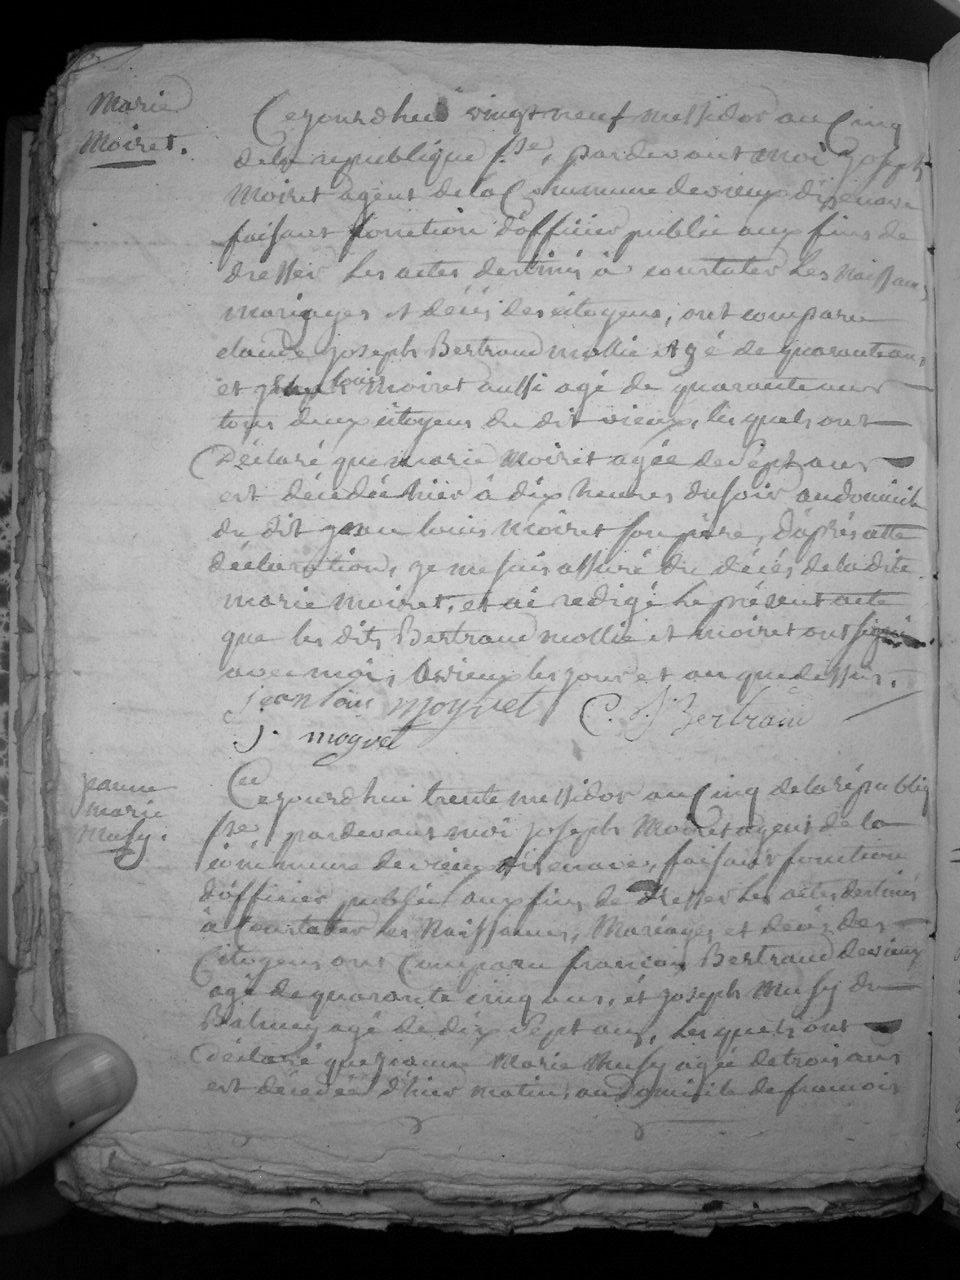 Marie
Moiret.
Cejourdhui vingt neuf messidor an Cinq
de la republique fse, pardevant moi joseph
Moiret agent de la Commune de vieux disenave
faisant fonction d'officier public aux fins de
dresser les actes destinés à constater les naissances
mariages et décés des citoyens, ont comparu
claude joseph Bertrand mollie Agé de quarante ans
et jean louis Moiret aussi agé de quarante ans
tous deux citoyens du dit vieux, lesquels ont
Déclaré que marie Moiret agée de sept ans
est décédée hier à dix heures du soir au domicile
du dit jean louis Moiret son père, d'aprés cette
déclaration, je me suis assuré du décés de la dite
marie moiret, et ai redigé le présent acte
que les dits Bertrand mollie et moiret ont signé
avec moi, A vieux les jour et an que dessus.
jean louis moyret C. J. Bertrand
J. moyret
jeanne
marie
Musy.
Cejourdhui trente messidor an Cinq de la républiq
fse, pardevant moi joseph Moiret agent de la
commune de vieux disenave, faisant fonction
d'officier public aux fins de Dresser les actes destinés
à Constater les Naissances, Mariages et décés des
Citoyens ont Comparu francois Bertrand de vieux
agé de quarante cinq ans, et joseph Musy du
Balmey agé de dix sept ans, lesquels ont
Déclaré que jeanne Marie Musy agée de trois ans
est décédée d'hier matin, au domicile de francois